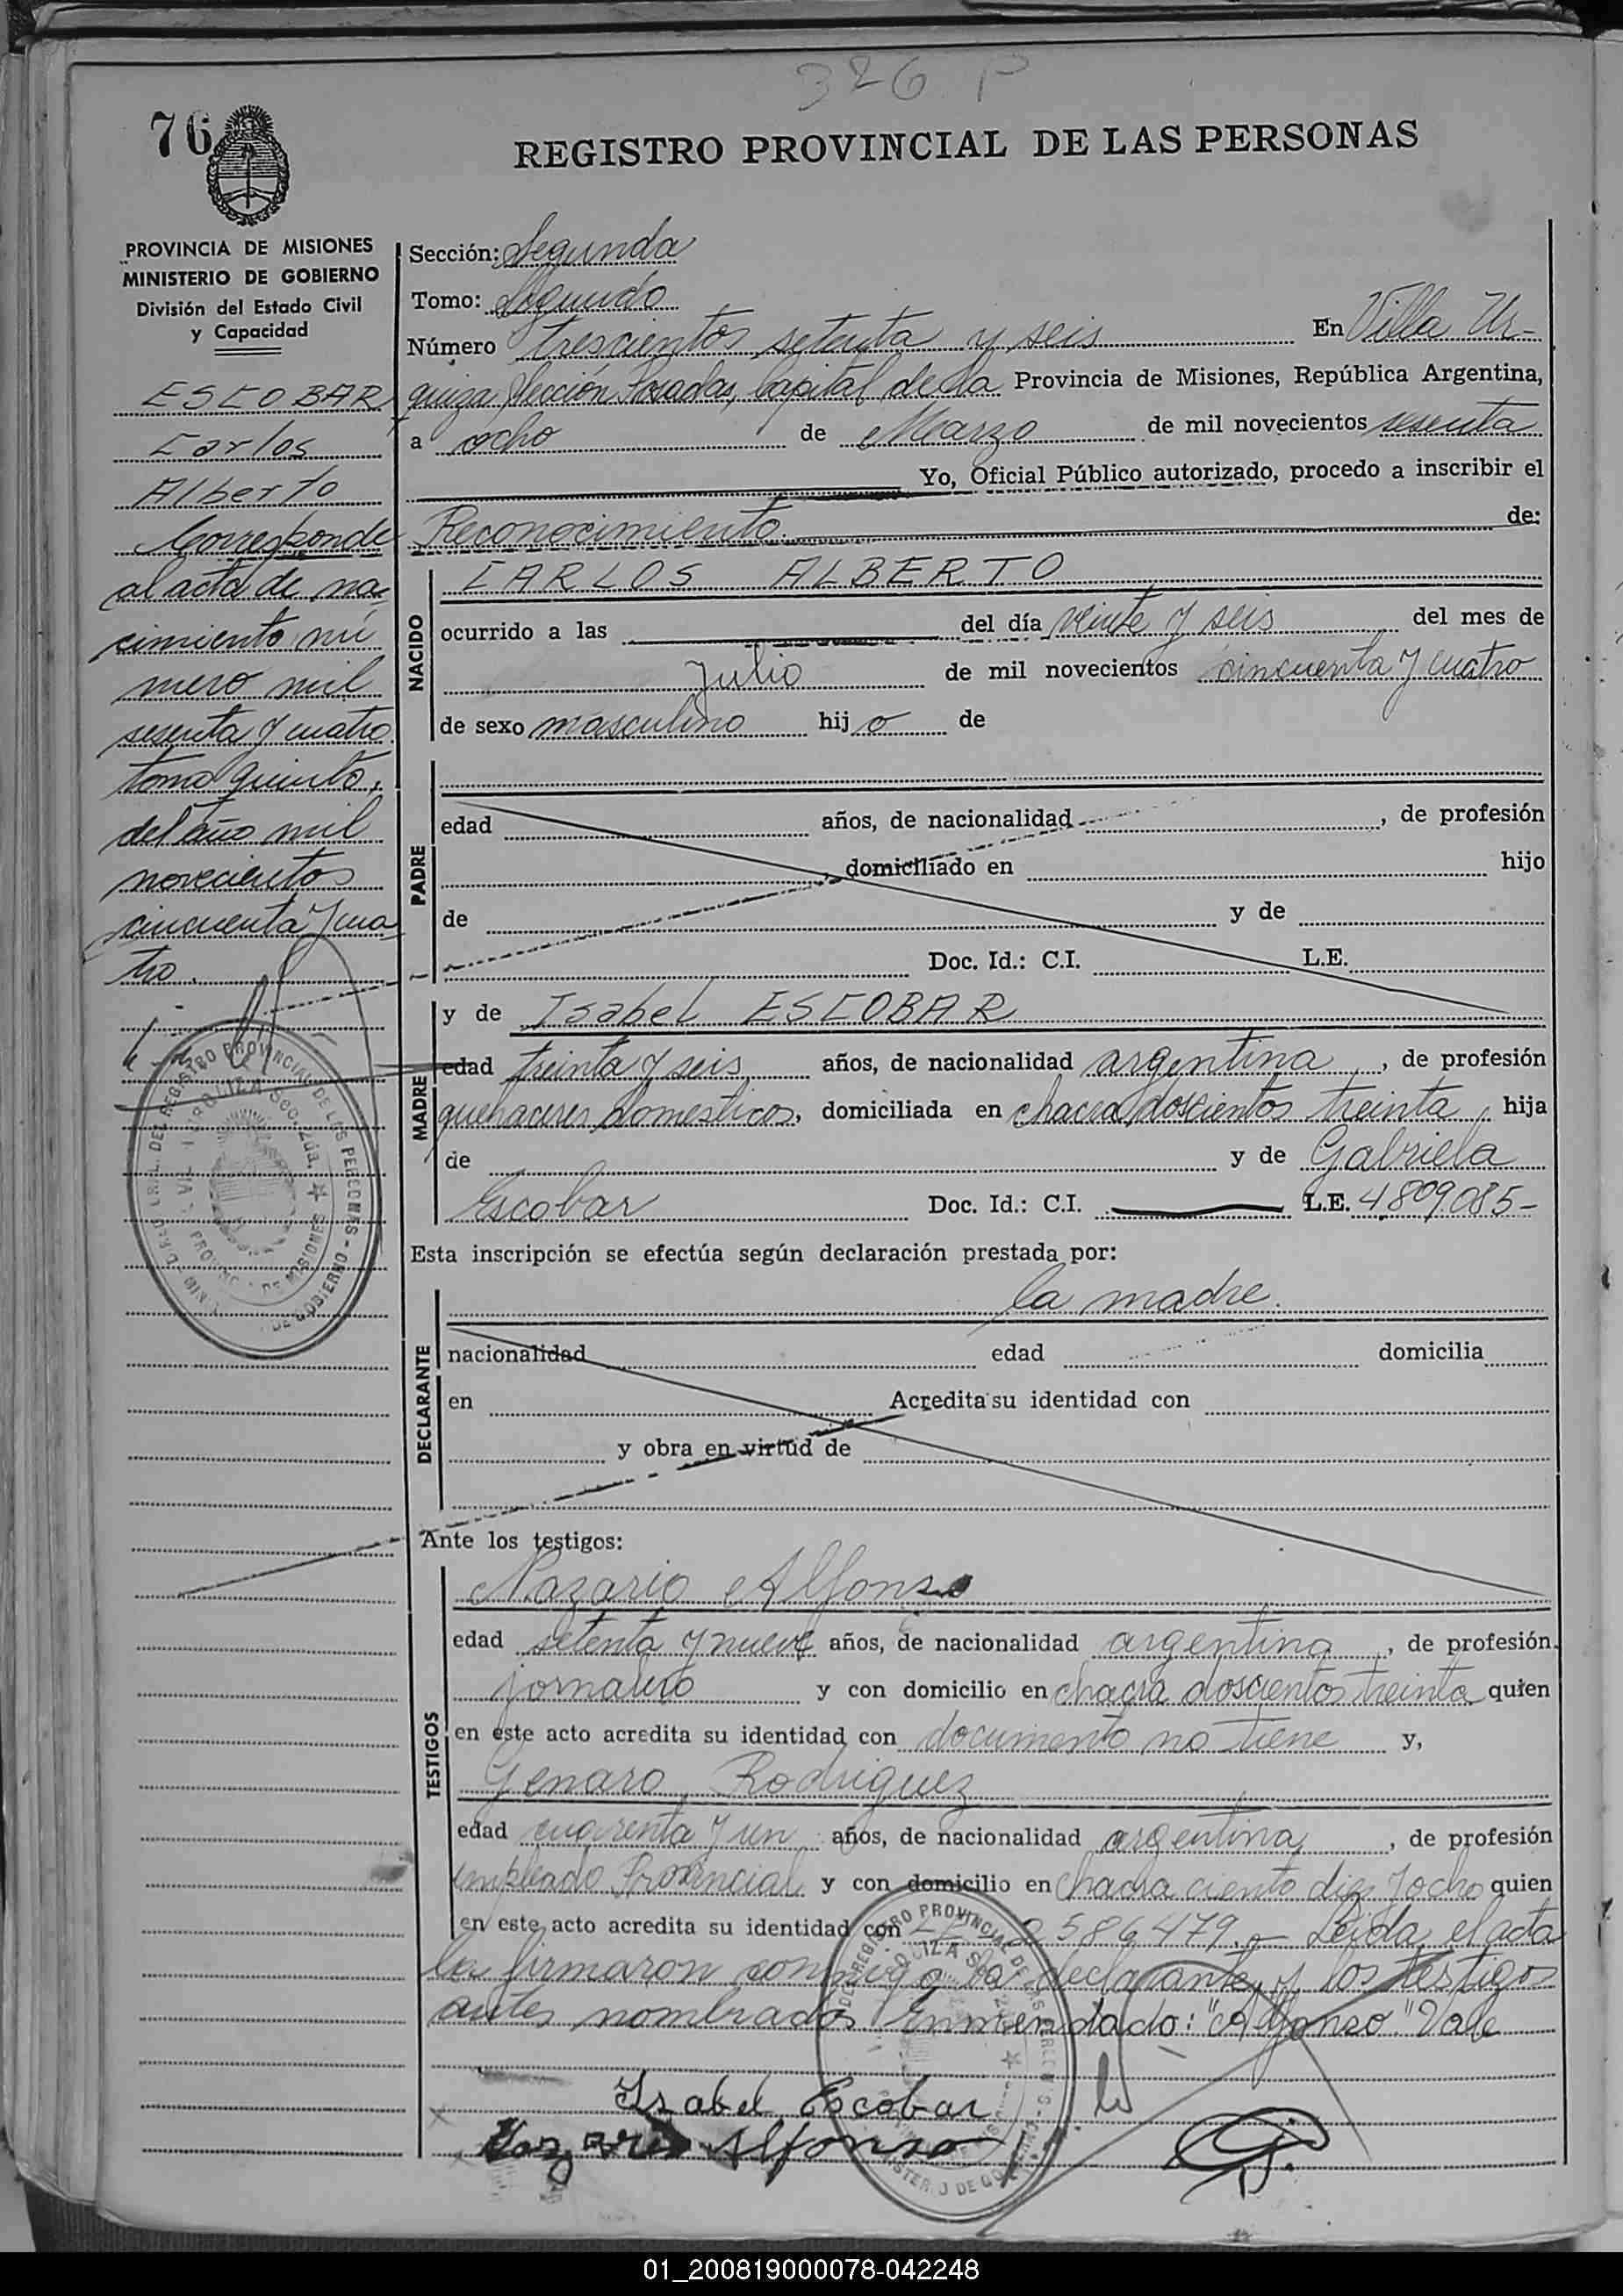 326 P
76
REGISTRO PROVINCIAL DE LAS PERSONAS
PROVINCIA DE MISIONES
MINISTERIO DE GOBIERNO
División del Estado Civil
y Capacidad
ESCOBAR
Carlos
Alberto
Corresponde
al acta de na-
cimiento nú
mero mil
sesenta y cuatro
tomo quinto,
del año mil
novecientos
cincuenta y cua
tro.
Sección: Segunda
Tomo: Segundo
Número trescientos setenta y seis En Villa Ur-
quiza Sección Posadas, Capital de la Provincia de Misiones, República Argentina,
a ocho de Marzo de mil novecientos sesenta
Yo, Oficial Público autorizado, procedo a inscribir el
Reconocimiento. de:
NACIDO
CARLOS ALBERTO
ocurrido a las del día veinte y seis del mes de
Julio de mil novecientos cincuenta y cuatro
de sexo masculino hijo de
PADRE
edad años, de nacionalidad , de profesión
domiciliado en hijo
de y de
Doc. Id.: C.I. L.E.
MADRE
y de Isabel ESCOBAR
edad treinta y seis años, de nacionalidad argentina, de profesión
quehaceres domesticos, domiciliada en chacra doscientos treinta, hija
de y de Gabriela
Escobar Doc. Id.: C.I. L.E. 4809.085-
Esta inscripción se efectúa según declaración prestada por:
DECLARANTE
la madre.
nacionalidad edad domicilia
en Acredita su identidad con
y obra en virtud de
Ante los testigos:
TESTIGOS
Nazario Alfonzo
edad setenta y nueve años, de nacionalidad argentina, de profesión
jornalero y con domicilio en chacra doscientos treinta quien
en este acto acredita su identidad con documento no tiene y,
Genaro Rodriguez
edad cuarenta y un años, de nacionalidad argentina, de profesión
empleado Provincial y con domicilio en chacra ciento diez y ocho quien
en este acto acredita su identidad con 2586479.- Leida el acta
la firmaron conmigo la declarante y los testigos
antes nombrados. Enmendado: "Alfonzo" Vale
Isabel Escobar
Nazario Alfonzo
01_200819000078-042248